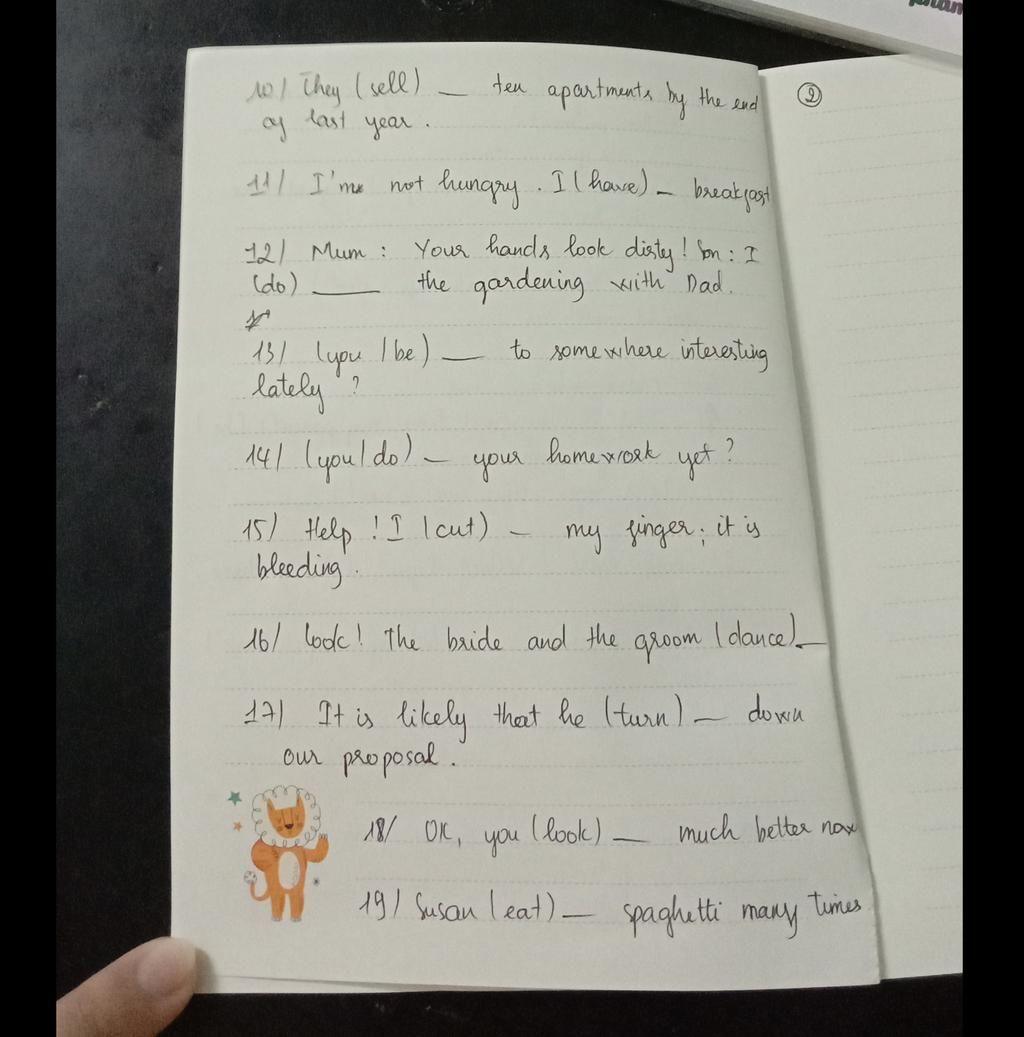 10/ They (sell) _ ten apartments by the end
of last year.
②
11/ I'm not hungry. I (have) _ breakfast
12/ Mum: Your hands look dirty! Son: I
(do) ___ the gardening with Dad.
13/ (you / be) __ to somewhere interesting
lately?
14/ (you/do) _ your homework yet?
15/ Help! I (cut) _ my finger; it is
bleeding.
16/ Look! The bride and the groom (dance)_
17/ It is likely that he (turn) _ down
our proposal.
18/ OK, you (look) __ much better now
19/ Susan (eat) __ spaghetti many times